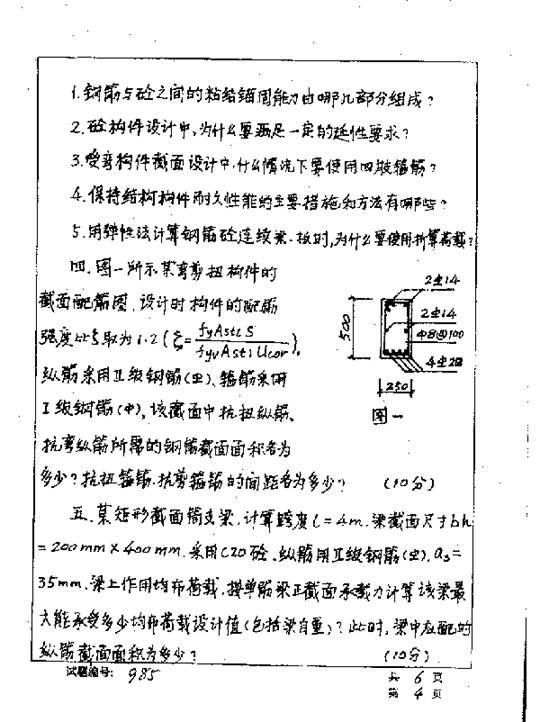 1.钢筋与砼之间的粘结锚固能力由哪几部分组成?
2.砼构件设计中,为什么要满足一定的延性要求?
3.受弯构件截面设计中,什么情况下要使用四肢箍筋?
4.保持结构构件耐久性能的主要措施和方法有哪些?
5.用弹性法计算钢筋砼连续梁、板时,为什么要使用折算荷载?
四.图一所示某弯剪扭构件的
截面配筋图,设计时构件的配筋
强度比ξ取为1.2(ξ=fyAstlS/fyvAst1Ucor),
纵筋采用Ⅱ级钢筋(Φ),箍筋采用
Ⅰ级钢筋(Φ),该截面中抗扭纵筋、
抗弯纵筋所需的钢筋截面面积各为
多少?抗扭箍筋、抗剪箍筋的间距各为多少? (10分)
2Φ14
2Φ14
Φ8@100
4Φ22
500
250
图一
五.某矩形截面简支梁,计算跨度l=4m.梁截面尺寸bh
=200mm×400mm.采用C20砼、纵筋用Ⅱ级钢筋(Φ),as=
35mm.梁上作用均布荷载,按单筋梁正截面承载力计算该梁最
大能承受多少均布荷载设计值(包括梁自重)?此时,梁中应配的
纵筋截面面积为多少? (10分)
试题编号: 985
共 6 页
第 4 页